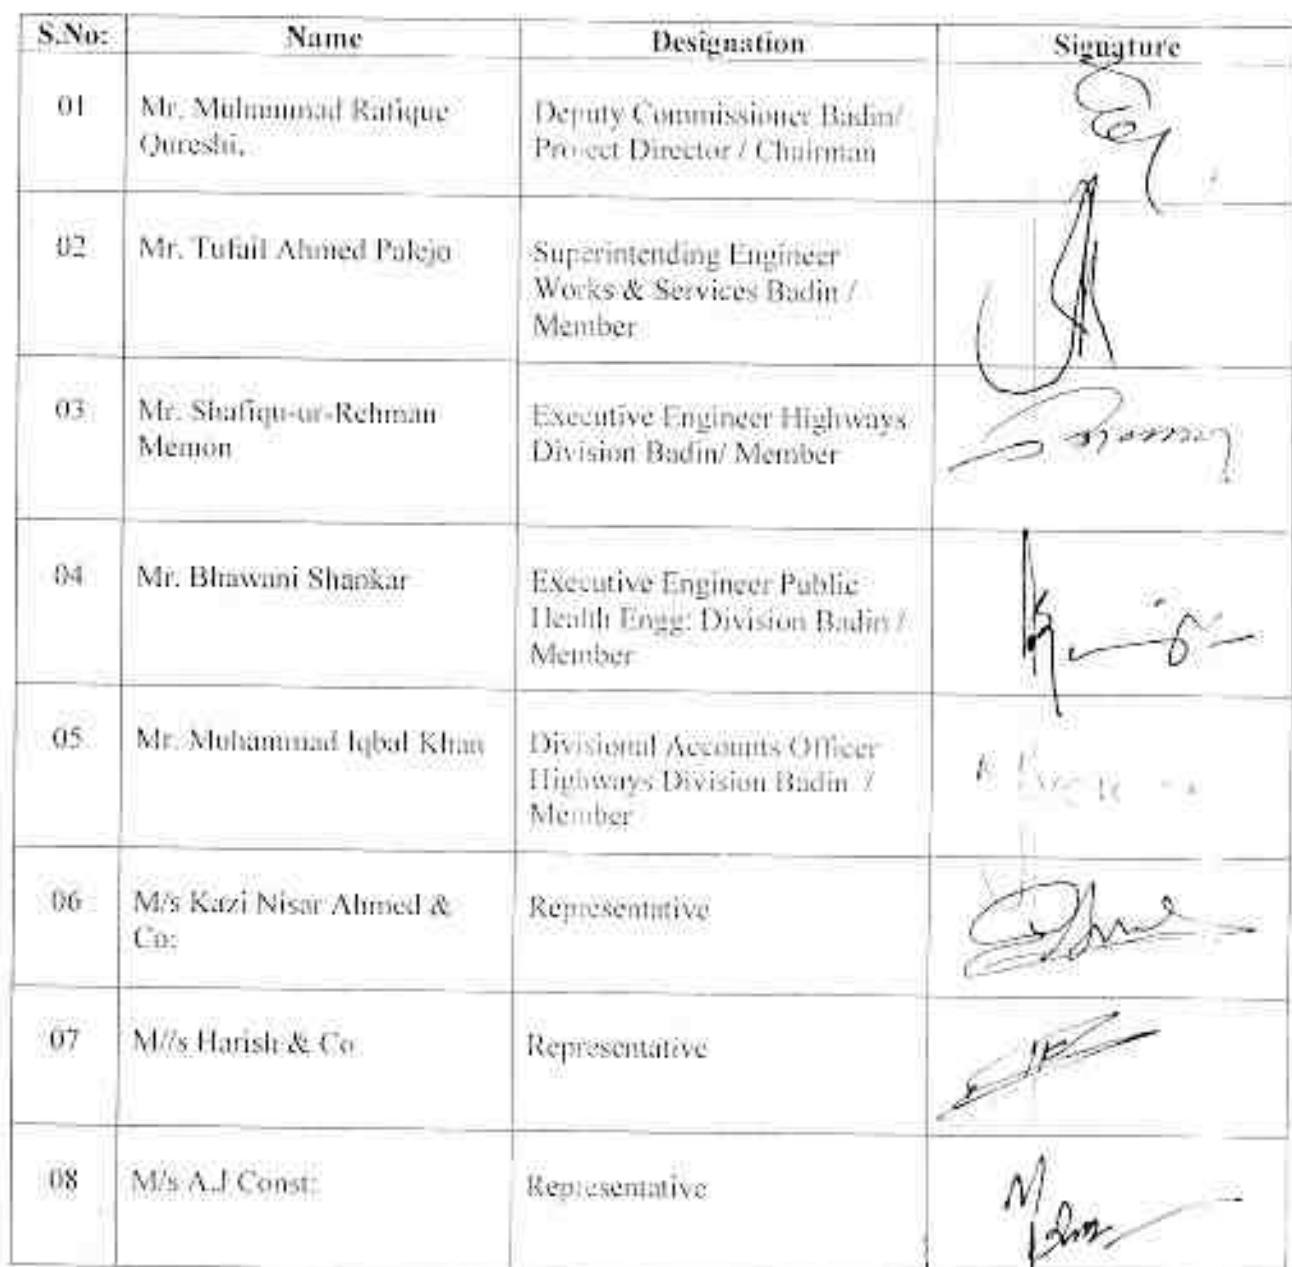 S.No: Name Designation Signature
01 Mr. Muhammad Rafique Deputy Commissioner Badin/
Qureshi, Project Director / Chairman
02 Mr. Tufail Ahmed Palejo Superintending Engineer
Works & Services Badin /
Member
03 Mr. Shafiqu-ur-Rehman Executive Engineer Highways
Memon Division Badin/ Member
04 Mr. Bhawani Shankar Executive Engineer Public
Health Engg: Division Badin /
Member
05 Mr. Muhammad Iqbal Khan Divisional Accounts Officer
Highways Division Badin /
Member
06 M/s Kazi Nisar Ahmed & Representative
Co:
07 M//s Harish & Co Representative
08 M/s A.J Const: Representative